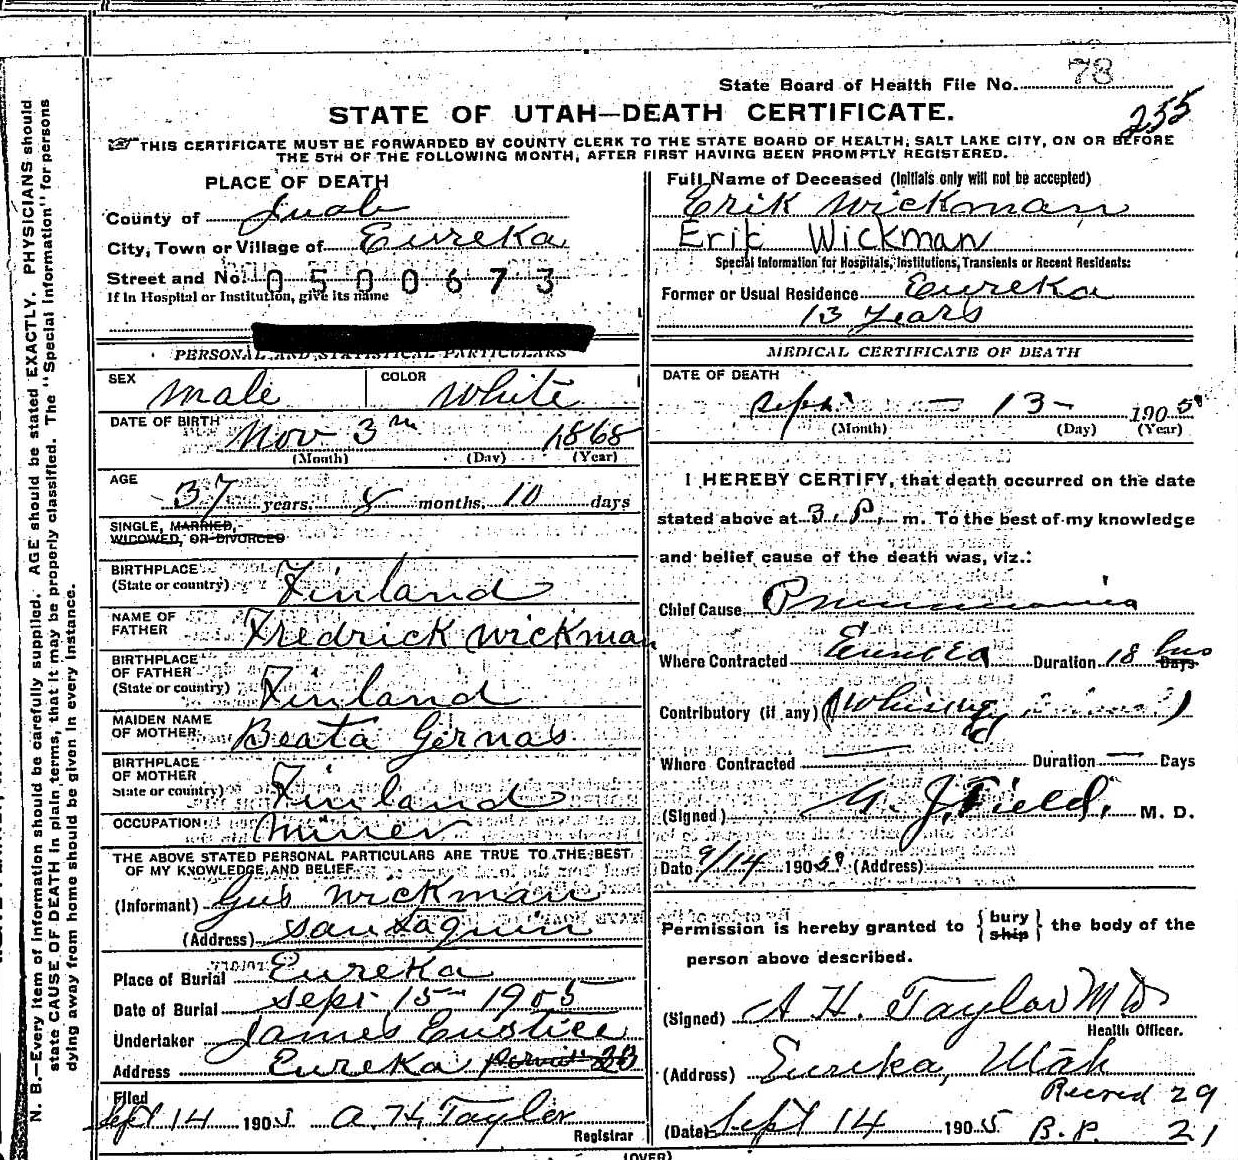 State Board of Health File No. 78
255
STATE OF UTAH—DEATH CERTIFICATE.
THIS CERTIFICATE MUST BE FORWARDED BY COUNTY CLERK TO THE STATE BOARD OF HEALTH, SALT LAKE CITY, ON OR BEFORE
THE 5TH OF THE FOLLOWING MONTH, AFTER FIRST HAVING BEEN PROMPTLY REGISTERED.
N. B.—Every item of information should be carefully supplied. AGE should be stated EXACTLY. PHYSICIANS should
state CAUSE OF DEATH in plain terms, that it may be properly classified. The "Special Information" for persons
dying away from home should be given in every instance.
PLACE OF DEATH
County of Juab
City, Town or Village of Eureka
Street and No. 0500673
If in Hospital or Institution, give its name
PERSONAL AND STATISTICAL PARTICULARS
SEX male COLOR White
DATE OF BIRTH Nov 3rd 1868
(Month) (Day) (Year)
AGE
37 years, 8 months, 10 days
SINGLE, MARRIED,
WIDOWED, OR DIVORCED
BIRTHPLACE
(State or country) Finland
NAME OF
FATHER Fredrick Wickman
BIRTHPLACE
OF FATHER
(State or country) Finland
MAIDEN NAME
OF MOTHER Beata Gernas
BIRTHPLACE
OF MOTHER
State or country) Finland
OCCUPATION Miner
THE ABOVE STATED PERSONAL PARTICULARS ARE TRUE TO THE BEST
OF MY KNOWLEDGE AND BELIEF
(Informant) Gus Wickman
(Address) Santaquin
Place of Burial Eureka
Date of Burial Sept 15 1905
Undertaker James Eustice
Address Eureka
Filed
Sept 14 1905 A. H. Taylor
Registrar
Full Name of Deceased (Initials only will not be accepted)
Erik Wickman
Eric Wickman
Special Information for Hospitals, Institutions, Transients or Recent Residents:
Former or Usual Residence Eureka
13 years
MEDICAL CERTIFICATE OF DEATH
DATE OF DEATH
Sept. — 13 — 1905
(Month) (Day) (Year)
I HEREBY CERTIFY, that death occurred on the date
stated above at 3 P. m. To the best of my knowledge
and belief cause of the death was, viz.:
Chief Cause Pneumonia
Where Contracted Eureka Duration 18 hrs Days
Contributory (if any) (Whiskey )
Where Contracted — Duration — Days
(Signed) J. Field, M. D.
Date 9/14 1905 (Address)
Permission is hereby granted to {bury ship} the body of the
person above described.
(Signed) A. H. Taylor M D
Health Officer.
(Address) Eureka, Utah
Record 29
(Date) Sept 14 1905 B. P. 21
(OVER)